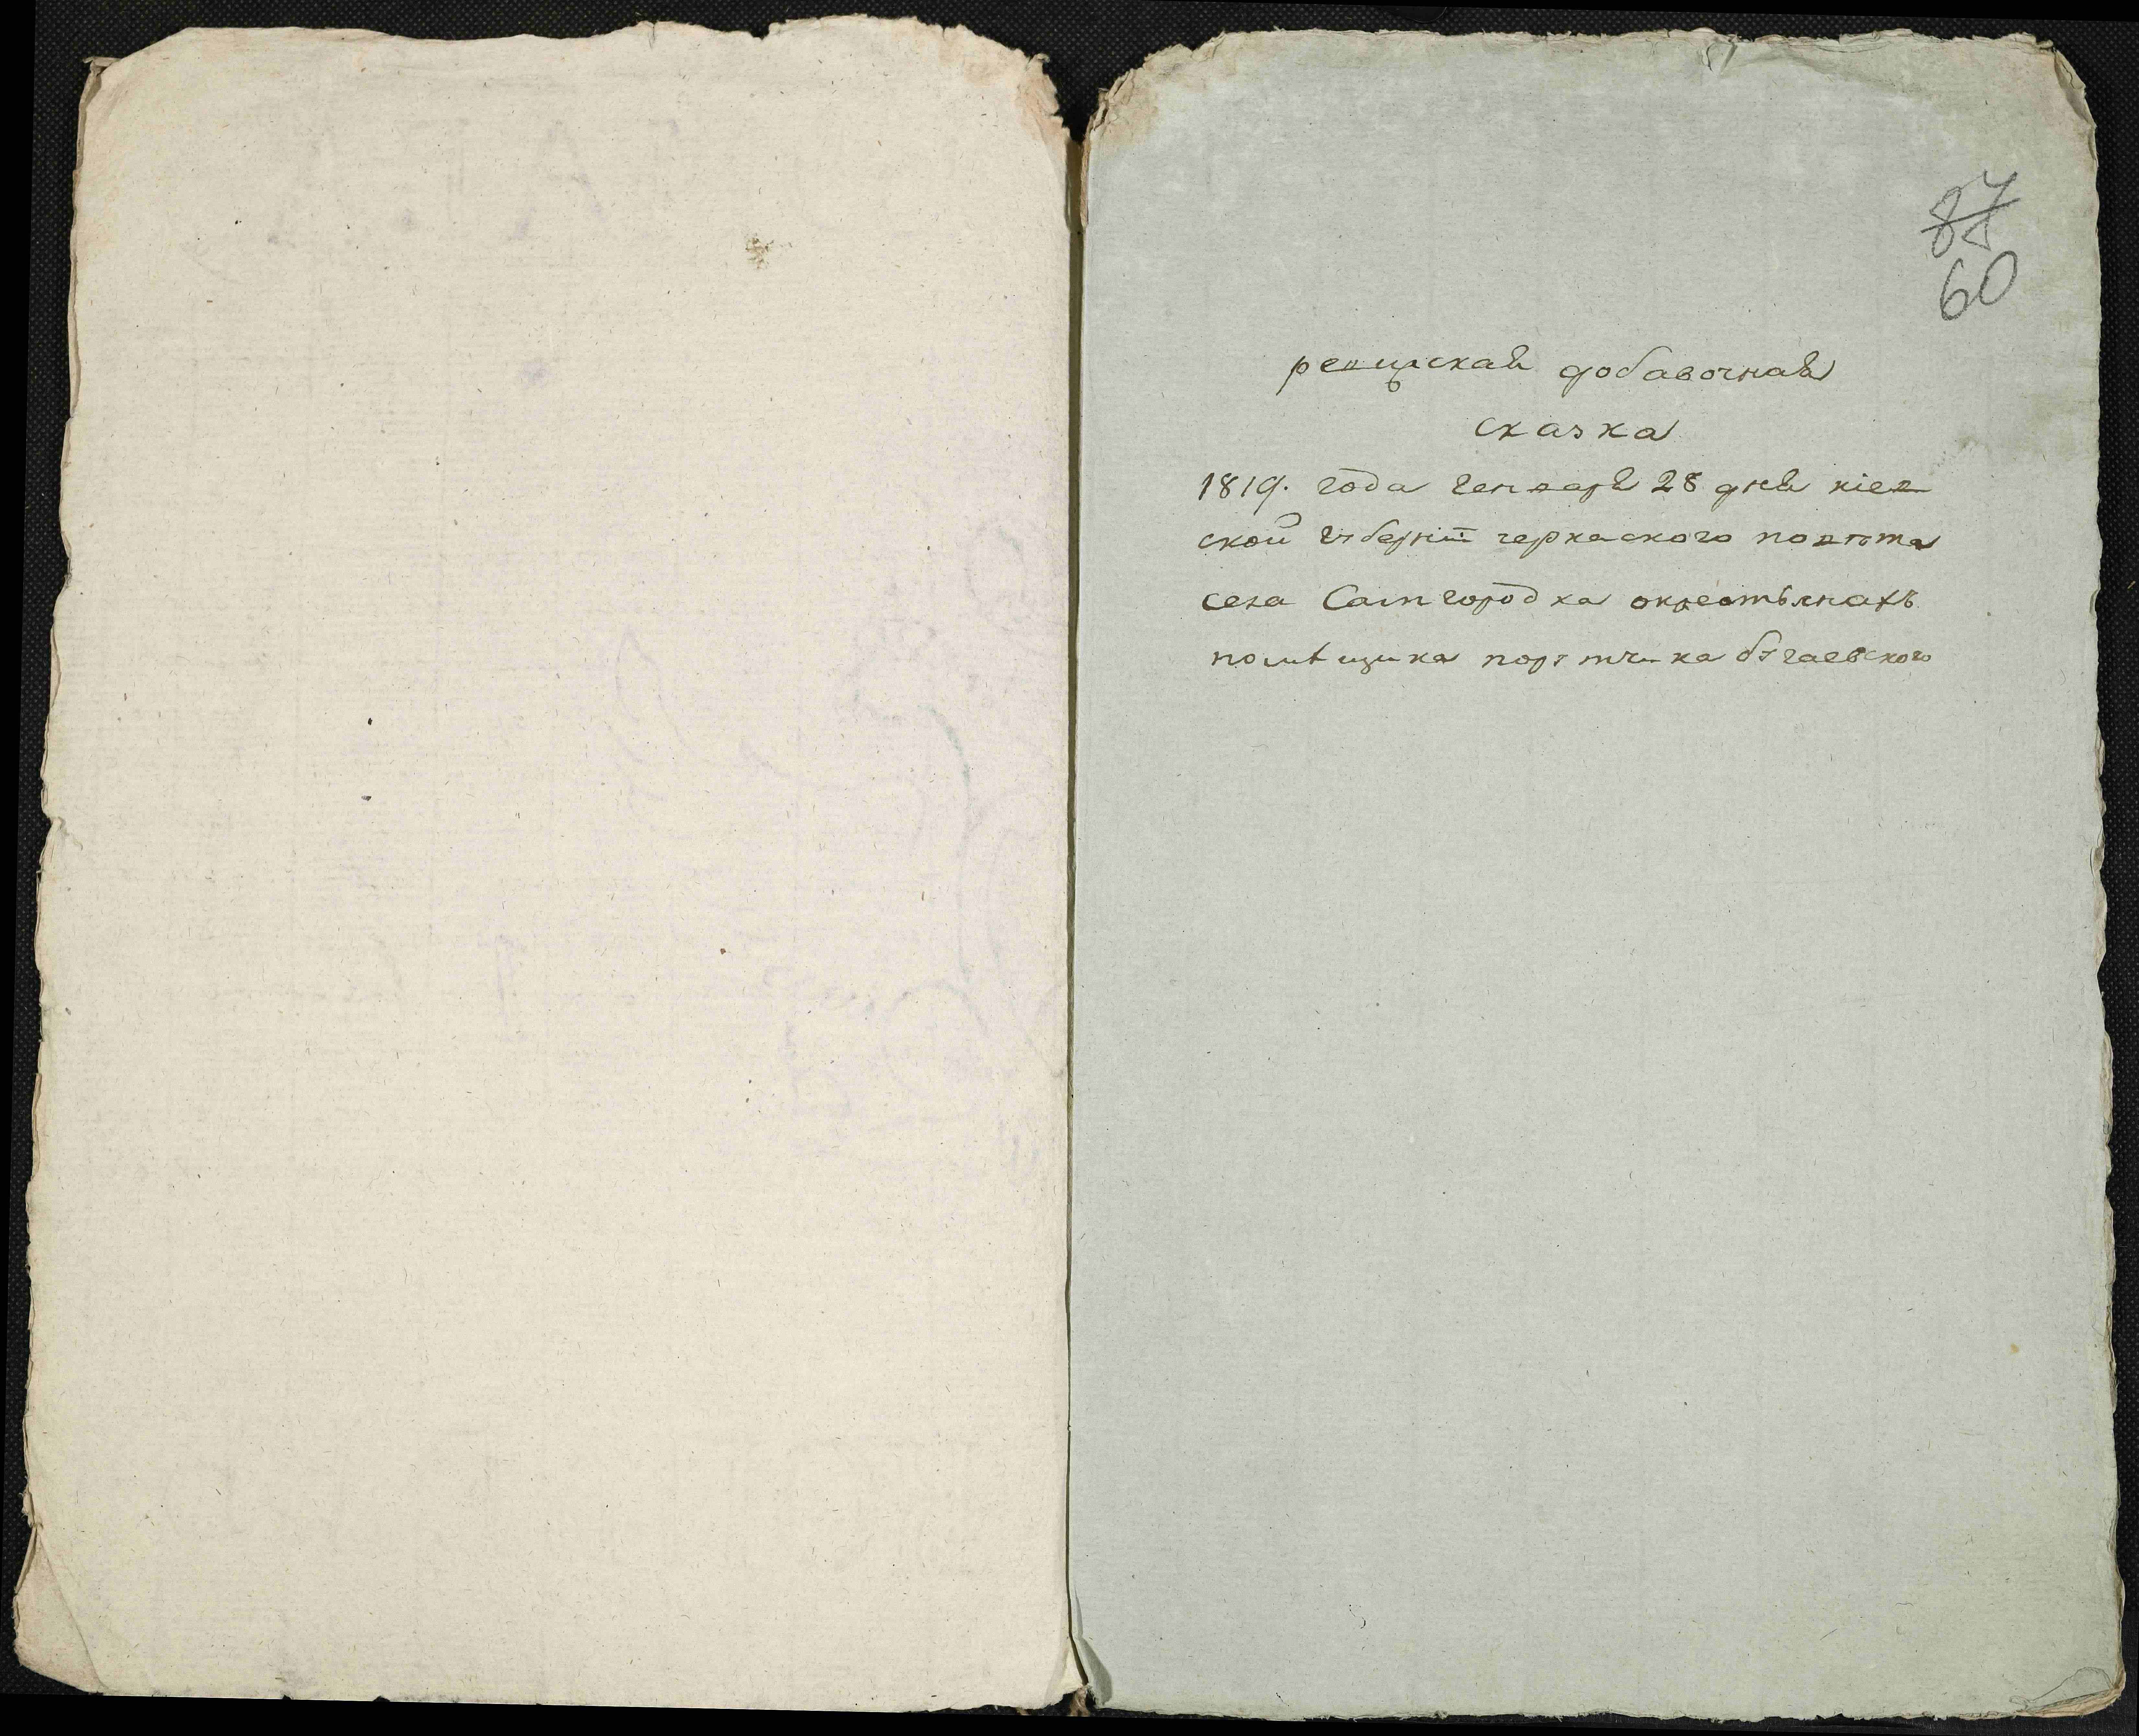 87
60
ревизская добавочная
сказка
1819. года генваря 28 дня кіев
ской губерніи черкаского повѣта
села Самгородка окрестьянахъ
помѣщика порутчика бугаевского